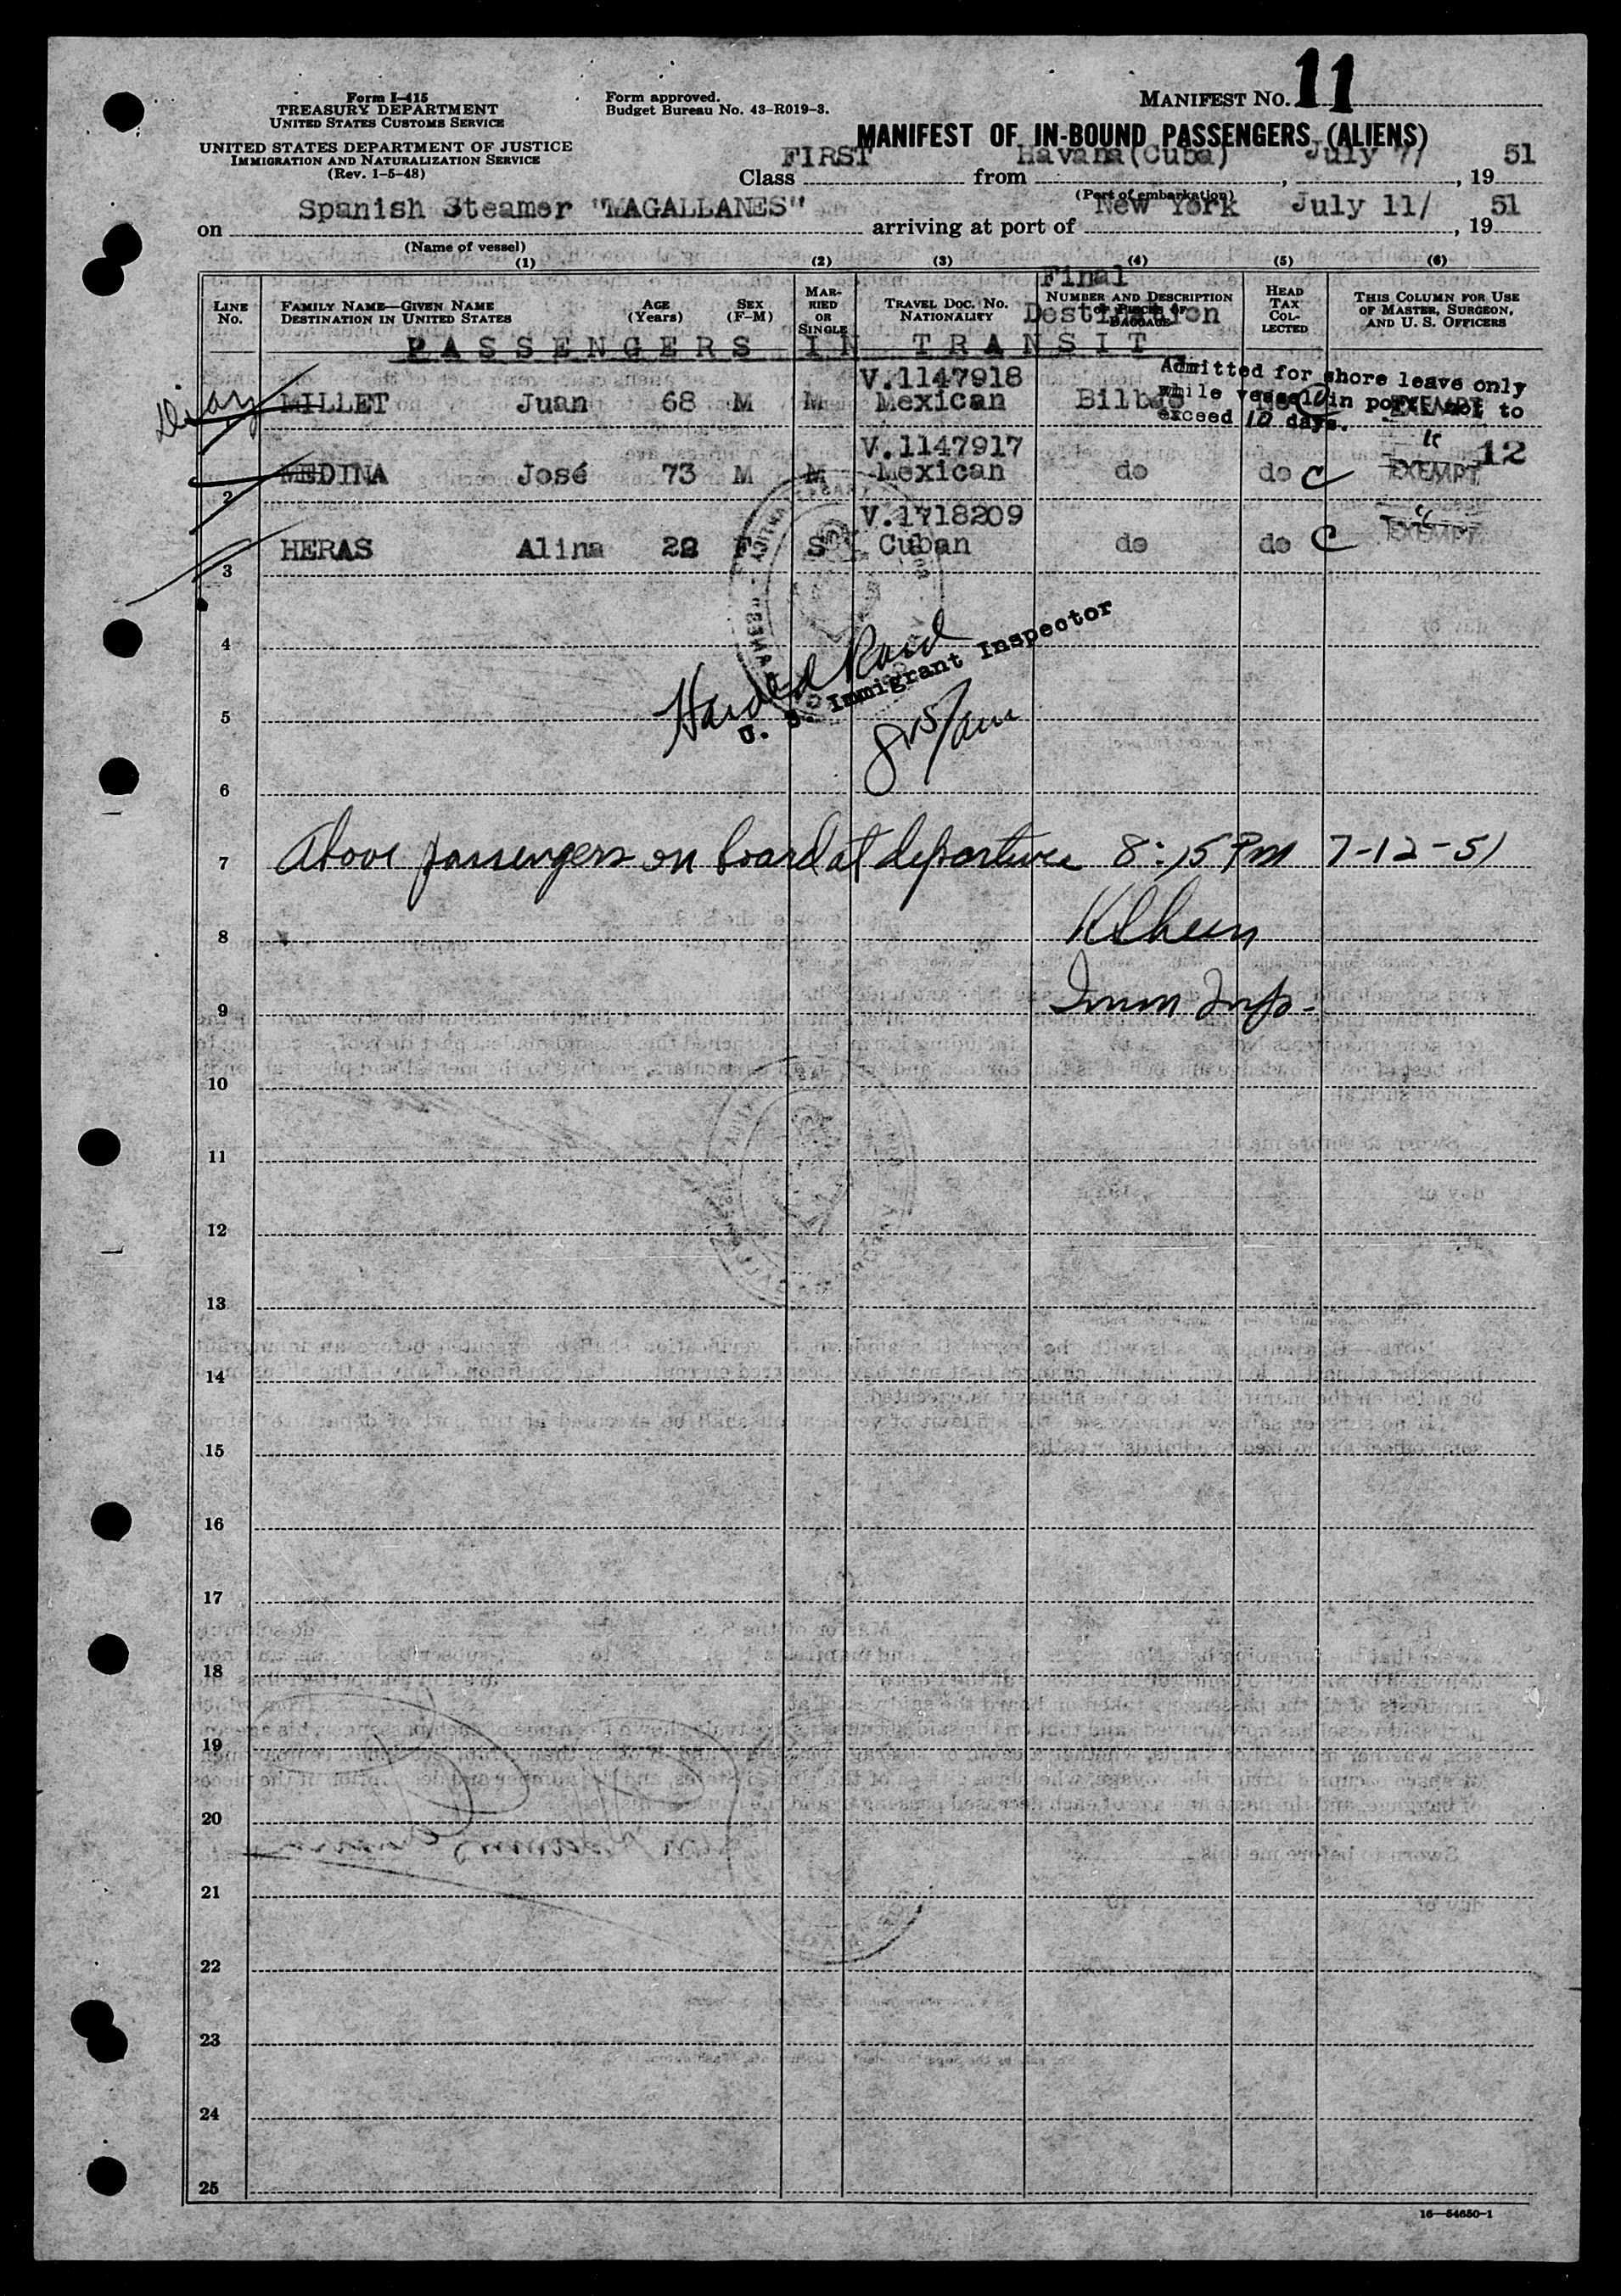 Form I-415
TREASURY DEPARTMENT
UNITED STATES CUSTOMS SERVICE
UNITED STATES DEPARTMENT OF JUSTICE
IMMIGRATION AND NATURALIZATION SERVICE
(Rev. 1-5-48)
Form approved.
Budget Bureau No. 43-R019-3.
MANIFEST NO. 11
MANIFEST OF IN-BOUND PASSENGERS (ALIENS)
Class FIRST from Havana(Cuba), July 7/, 1951
(Port of embarkation)
on Spanish Steamer "MAGALLANES" arriving at port of New York July 11/, 1951
(Name of vessel)
(1) (2) (3) (4) (5) (6)
LINE No. FAMILY NAME—GIVEN NAME DESTINATION IN UNITED STATES AGE (Years) SEX (F-M) MARRIED OR SINGLE TRAVEL DOC. NO. NATIONALITY Final NUMBER AND DESCRIPTION OF PIECES OF BAGGAGE Destination HEAD TAX COLLECTED THIS COLUMN FOR USE OF MASTER, SURGEON, AND U. S. OFFICERS
PASSENGERS IN TRANSIT
Admitted for shore leave only
while vessel in port not to
exceed 10 days.
V.1147918
Diaz MILLET Juan 68 M M Mexican Bilbao EXEMPT
V.1147917 12
2 MEDINA José 73 M M Mexican do do C EXEMPT
V.1718209
3 HERAS Alina 22 F S Cuban do do C EXEMPT
4
U. S. Immigrant Inspector
5
8 15/am
6
7 Above passengers on board at departure 8:15 PM 7-12-51
8
9 Imm Insp.
10
11
12
13
14
15
16
17
18
19
20
21
22
23
24
25
16—54650-1